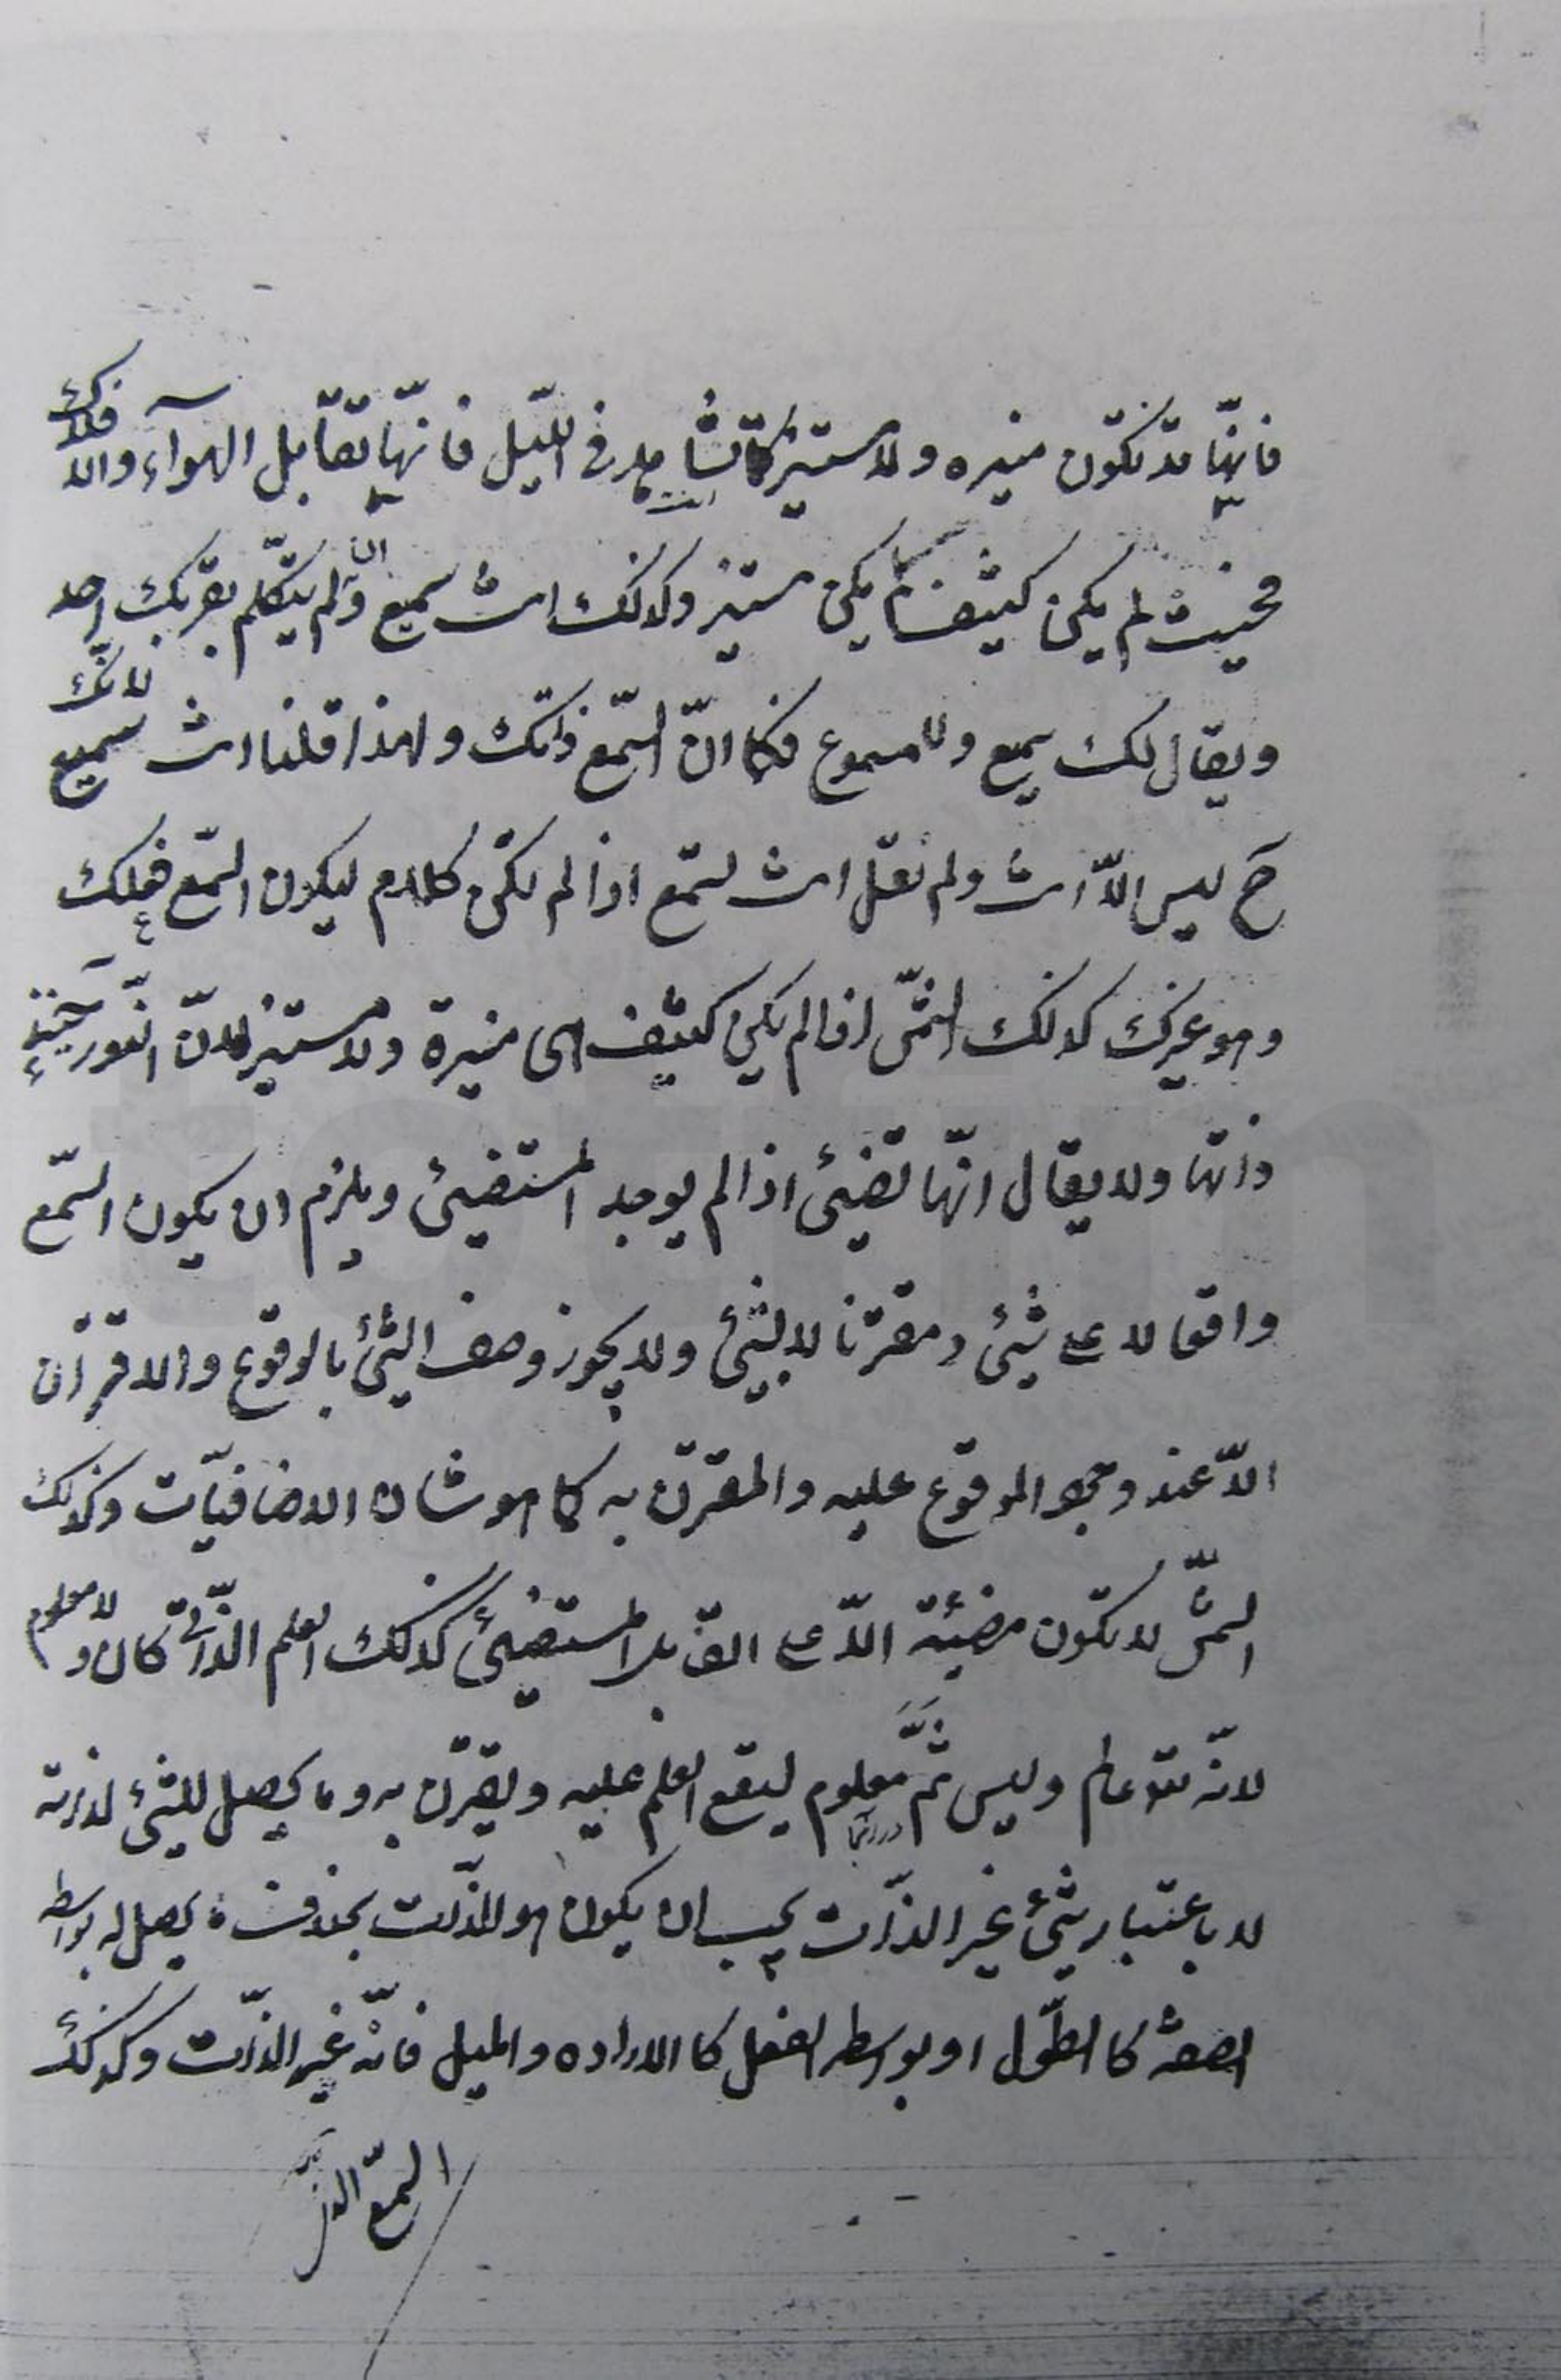 فانّها قد تكون منيره ولا مستنير كما تشاهد فی اللّيل فانّها تقابل الهوآء والافلاك
فحيث لم يكن كثيف لم يكن مستنير وكذلك انت سميع الان ولم يتكلّم بقربك احد
ويقال لك سميع ولا مسموع فكما انّ السّمع ذاتك ولهذا قلنا انت سميع لانّك
ح ليس الّا انت ولم نقل انت تسمع اذا لم يكن كلام ليكون السّمع فعلك
وهو غيرك كذلك الشّمس اذا لم يكن كثيف هى منيرة ولا مستنير لانّ النّور حينئذ
ذاتها ولا يقال انّها تضيئ اذا لم يوجد المستضيئ ويلزم ان يكون السّمع
واقعا لا على شيئ ومقترنا لا بشيئ ولا يجوز وصف الشّيئ بالوقوع والاقتران
الّا عند وجود الموقوع عليه والمقترن به كما هو شان الاضافيّات وكذلك
الشّمس لا تكون مضيئة الّا على القابل المستضيئ كذلك العلم الذّاتی كان ولا معلوم
لانّه تعالى عالم وليس ثمّ معلوم ليقع العلم عليه ويقترن به وما يحصل للشّيئ لذاته
لا باعتبار شيئ غير الذّات يجب ان يكون هو الذّات بخلاف ما يحصل له بواسطه
الصفة كا الطّول او بواسطه الفعل كا الاراده والميل فانّه غير الذّات وكذلك
السّمع الذّ